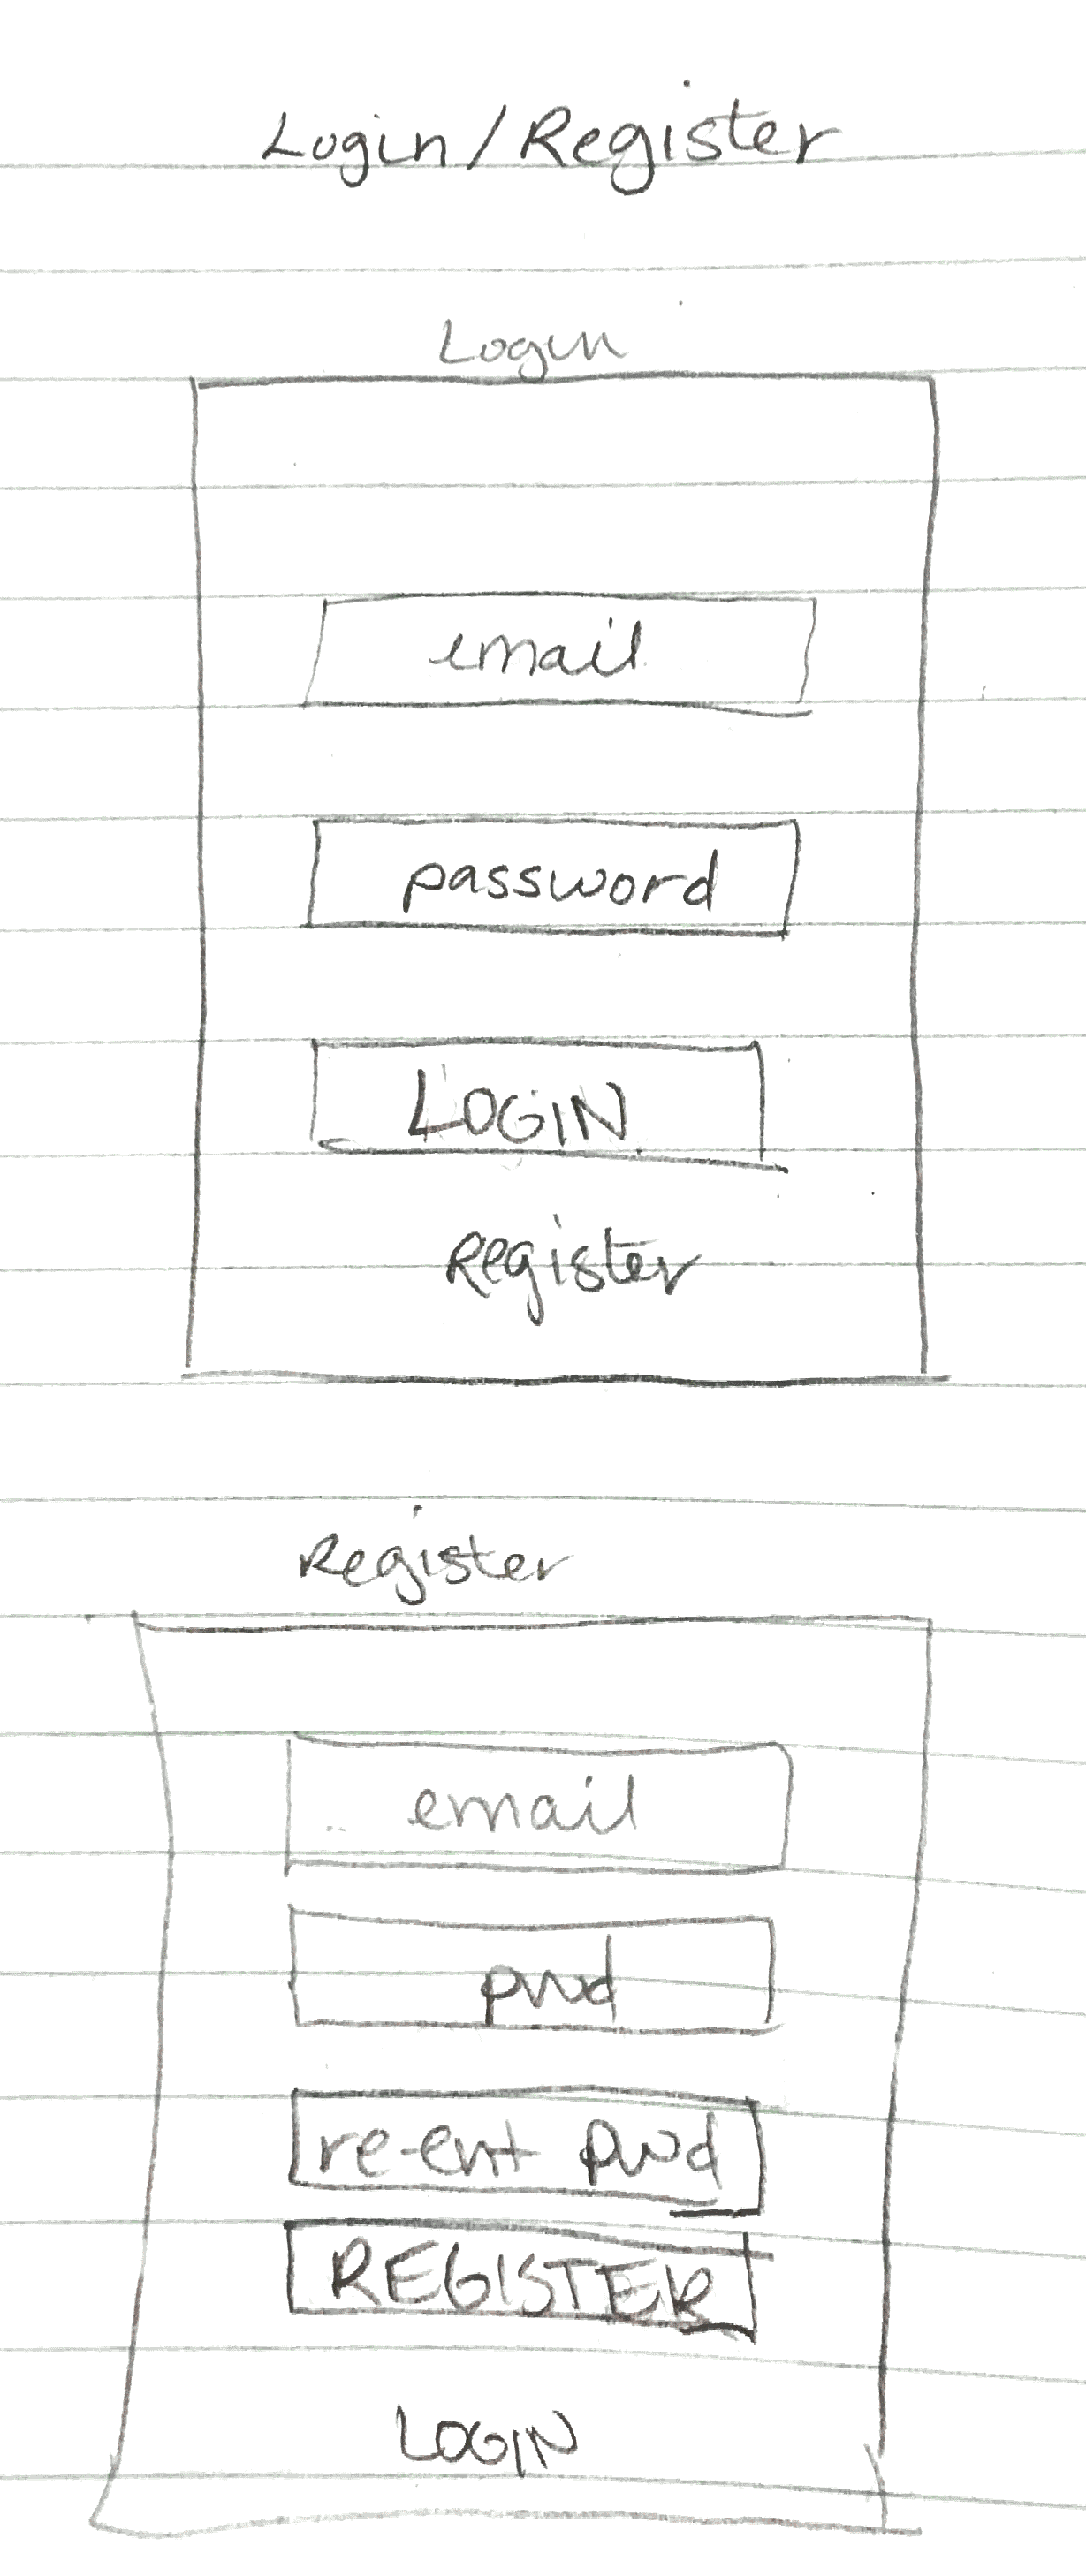 Login/Register
Login
email
password
LOGIN
Register
Register
email
pwd
re-ent pwd
REGISTER
LOGIN